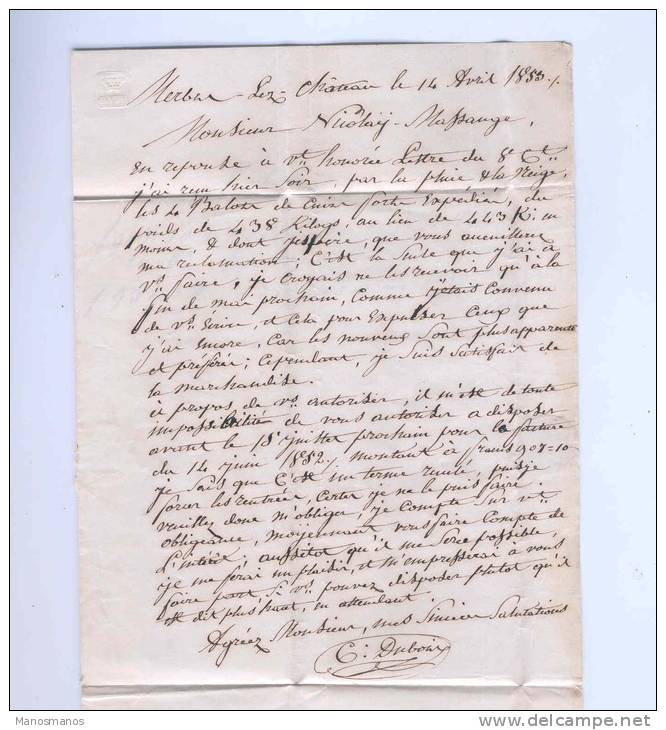 Merbes-Lez-Château le 14 Avril 1853./.
Monsieur Nicolaÿ-Massange,
en reponse à vtre honorée Lettre du 8 Ct
j'ai reçu hier Soir, par la pluie & la Neige,
les 4 Balots de Cuirs forts Expediés, du
poids de 438 Kilogs, au lieu de 443 K. en
moins, & dont j'espère, que vous accuillerez
ma reclamation; C'est la Suite que j'ai à
Vs faire, je croyais ne les recevoir qu'à la
fin de mai prochain, comme j'etais convenu
de Vs Ecrire, et Cela pour Expulser Ceux que
j'ai Encore, Car les nouveaux Sont plus apparents
et préférés; Cependant, je Suis Satisfait de
la marchandise.
à propos de Vs autoriser, il m'est de toute
impossibilité de vous autoriser a disposer
avant le 15 juillet prochain pour la facture
du 14 juin 1852, montant à francs 907=10
je Sais que C'est un terme reculé, puis-je
forcer les rentrées, Certes je ne le puis faire.
veuillez donc m'obliger, je Compte Sur vtre
obligeance, moyennant vous faire Compte de
l'intérêt. aussitot qu'il me Sera possible,
je me ferai un plaisir, et m'empresserai à vous
faire part Si Vs pouvez disposer plutot qu'il
est dit plus haut, en attendant.
Agréez Monsieur, mes Sincères Salutations
C. Dubois
Manosmanos
www.delcampe.net